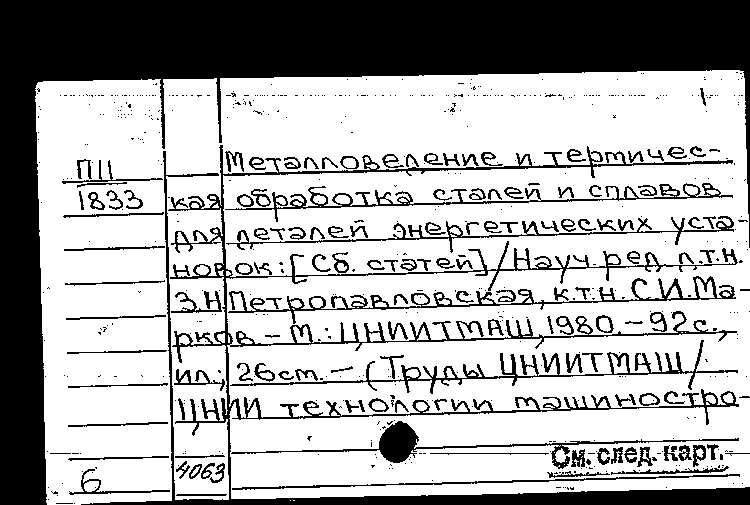 1
ПII Металловедение и термичес-
1833 кая обработка сталей и сплавов
для деталей энергетических уста-
новок: [Сб. статей] / Науч. ред. д.т.н.
З.Н Петропавловская, к.т.н. С.И. Ма-
рков. – М.: ЦНИИТМАШ, 1980. – 92 с.,
ил.; 26 см. – (Труды ЦНИИТМАШ /
ЦНИИ технологии машиностро-
См. след. карт.
б 4063